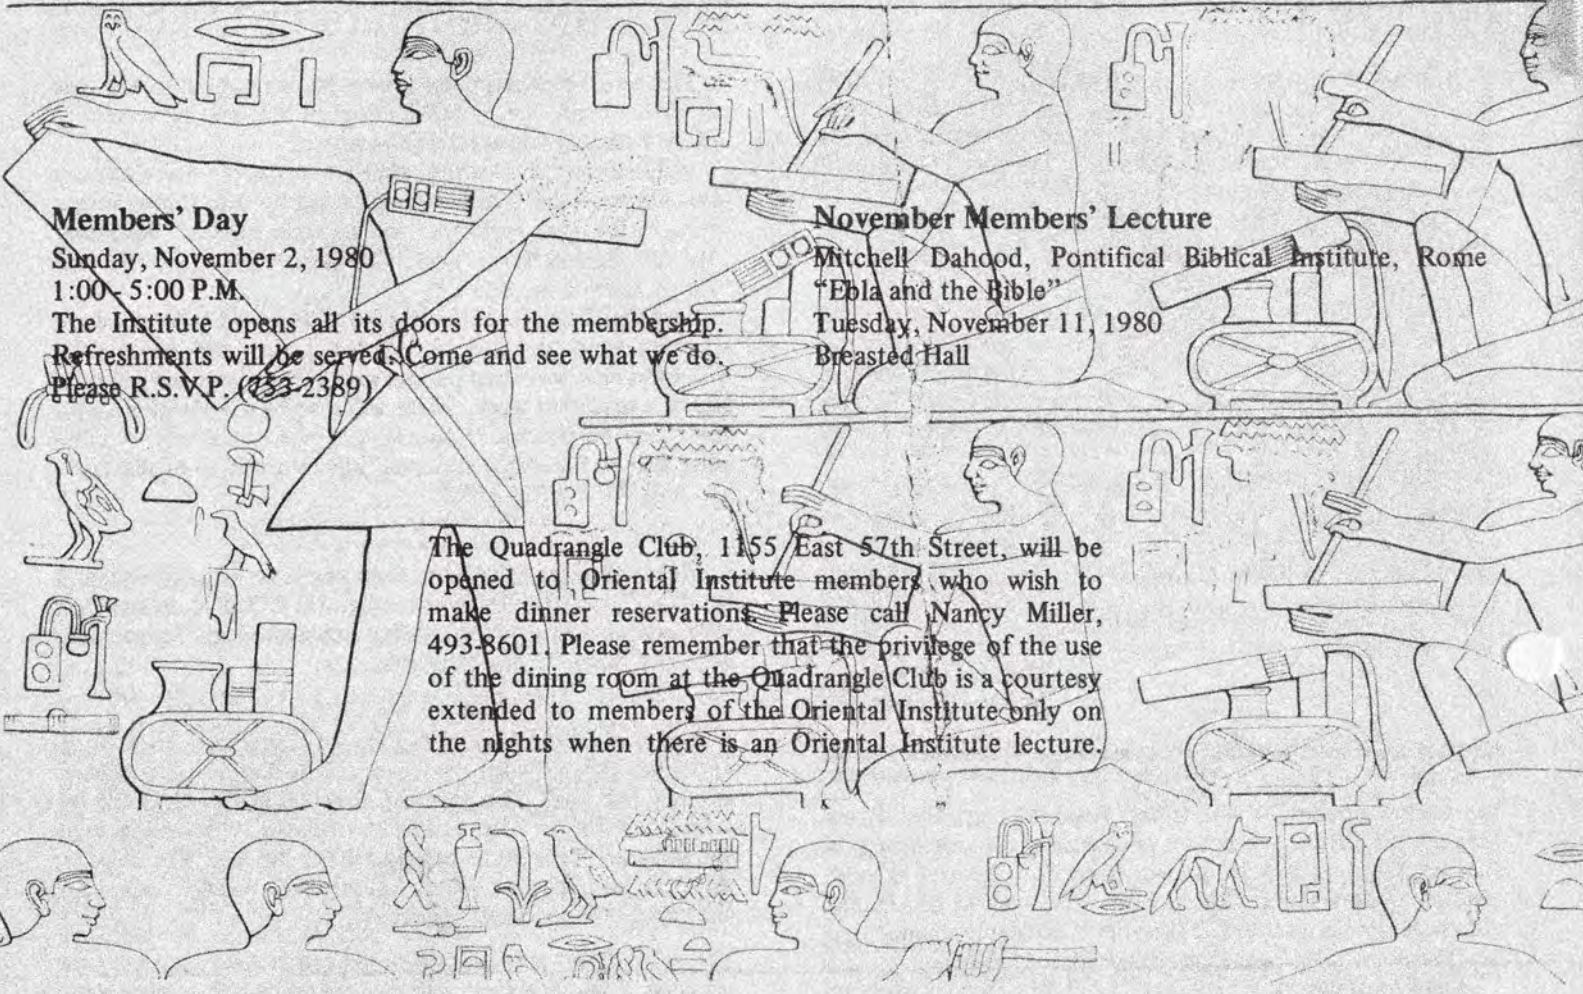 Members' Day
Sunday, November 2, 1980
1:00 - 5:00 P.M.
The Institute opens all its doors for the membership.
Refreshments will be served. Come and see what we do.
Please R.S.V.P. (753-2389)
November Members' Lecture
Mitchell Dahood, Pontifical Biblical Institute, Rome
“Ebla and the Bible”
Tuesday, November 11, 1980
Breasted Hall
The Quadrangle Club, 1155 East 57th Street, will be
opened to Oriental Institute members who wish to
make dinner reservations. Please call Nancy Miller,
493-8601. Please remember that the privilege of the use
of the dining room at the Quadrangle Club is a courtesy
extended to members of the Oriental Institute only on
the nights when there is an Oriental Institute lecture.